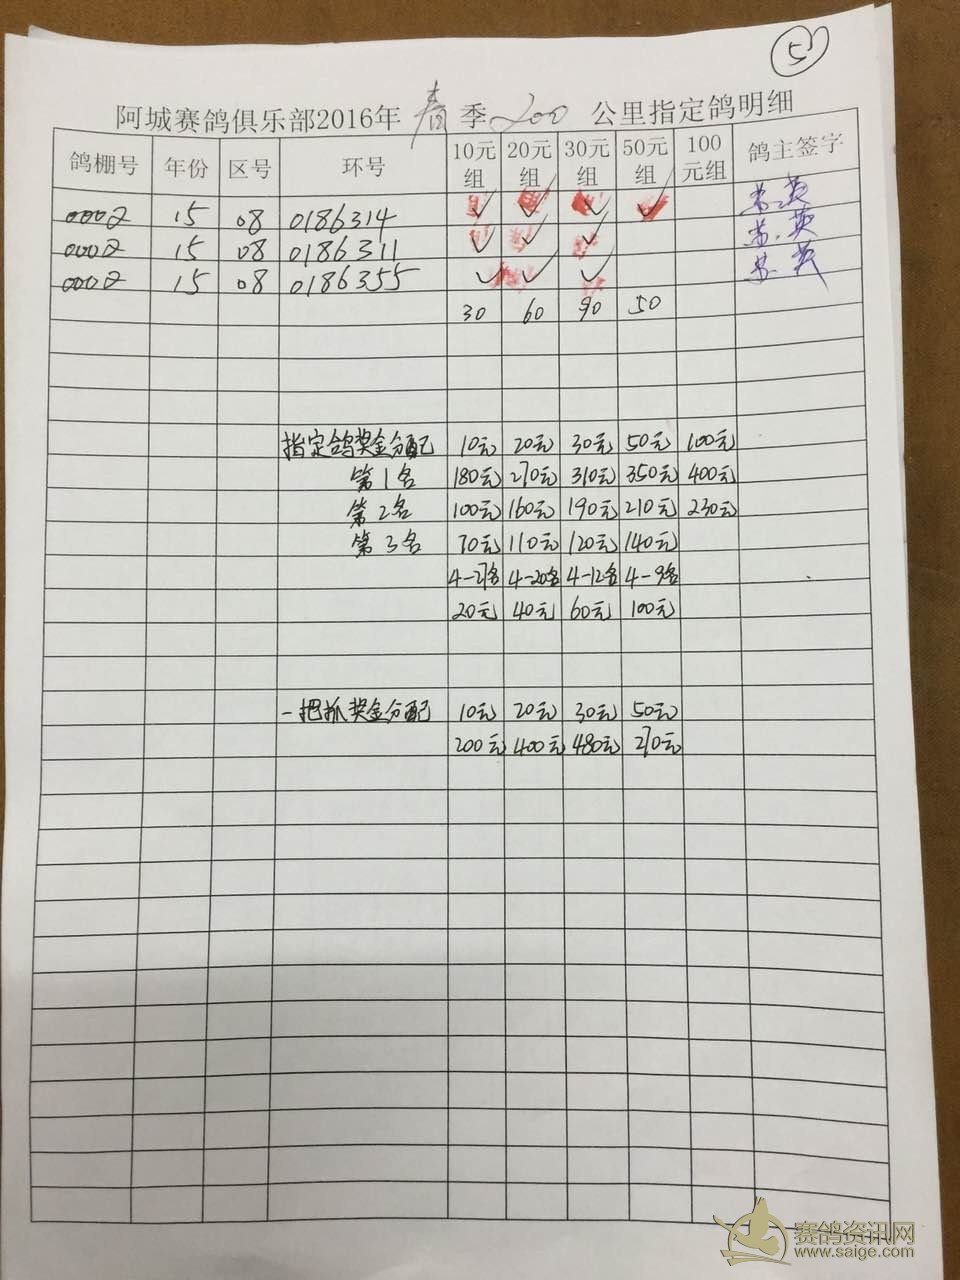 5
阿城赛鸽俱乐部2016年 春 季 200 公里指定鸽明细
鸽棚号 年份 区号 环号 10元组 20元组 30元组 50元组 100元组 鸽主签字
0002 15 08 0186314 ✓ ✓ ✓ ✓
0002 15 08 0186311 ✓ ✓ ✓
0002 15 08 0186355 ✓ ✓ ✓
30 60 90 50
指定鸽奖金分配 10元 20元 30元 50元 100元
第1名 180元 270元 310元 350元 400元
第2名 100元 160元 190元 210元 230元
第3名 70元 110元 120元 140元
4-27名 4-20名 4-12名 4-9名
20元 40元 60元 100元
一把抓奖金分配 10元 20元 30元 50元
200元 400元 480元 270元
赛鸽资讯网
www.saige.com